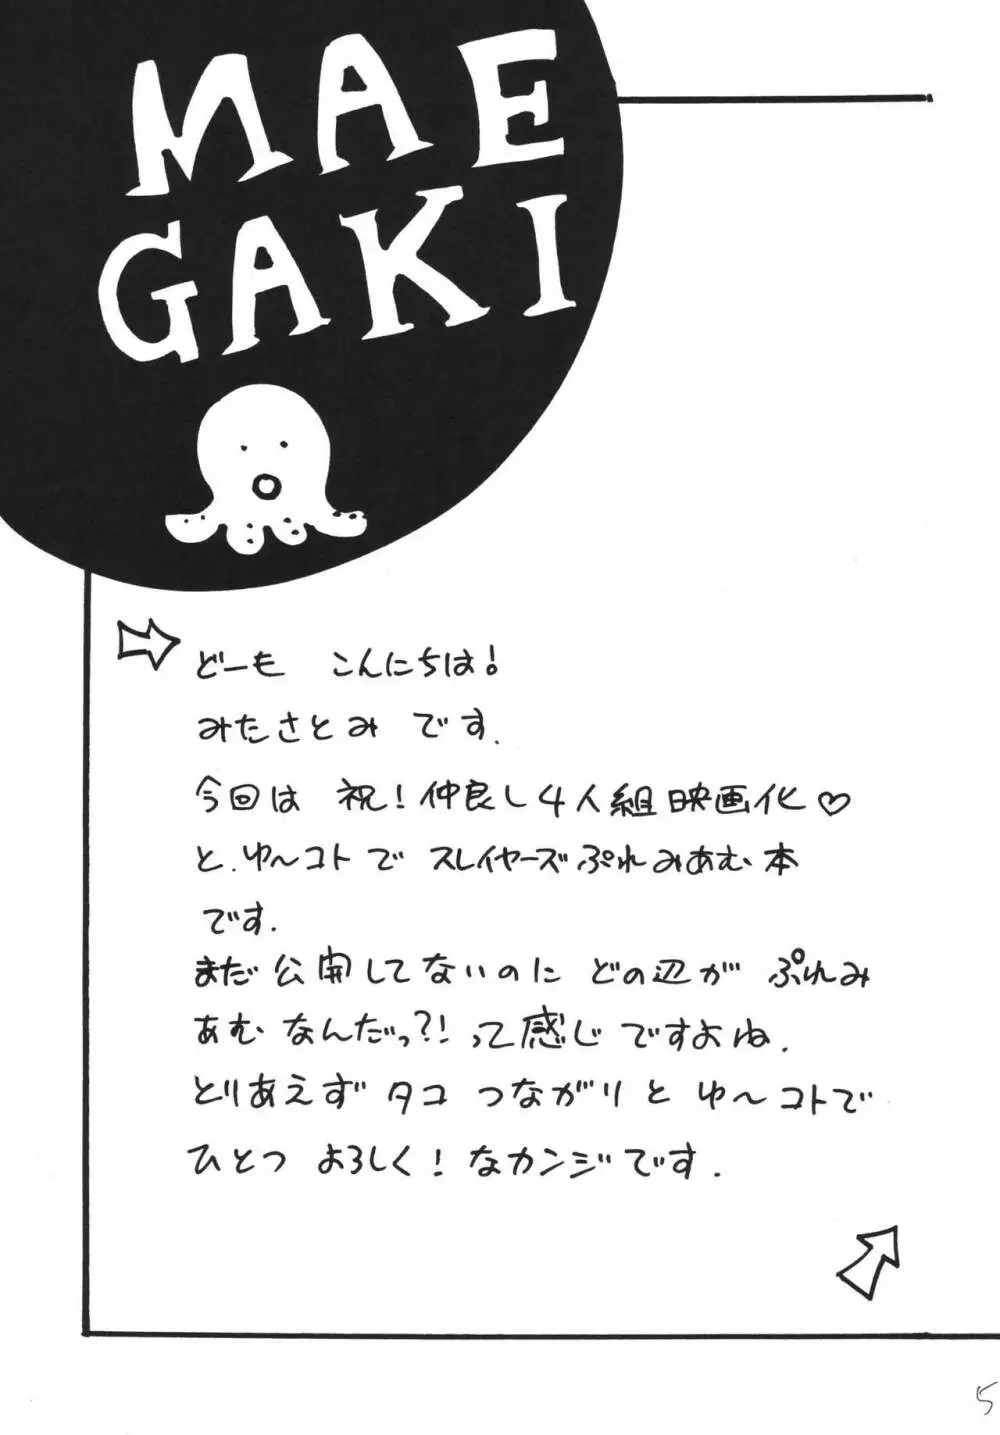 MAE
GAKI
どーも こんにちは!
みたさとみ です.
今回は 祝!仲良し4人組映画化♡
と.ゆ〜コトで スレイヤーズぷれみあむ本
です.
まだ公開してないのに どの辺が ぷれみ
あむなんだっ?!って感じですよね.
とりあえずタコつながりと ゆ〜コトで
ひとつ よろしく!なカンジです.
5